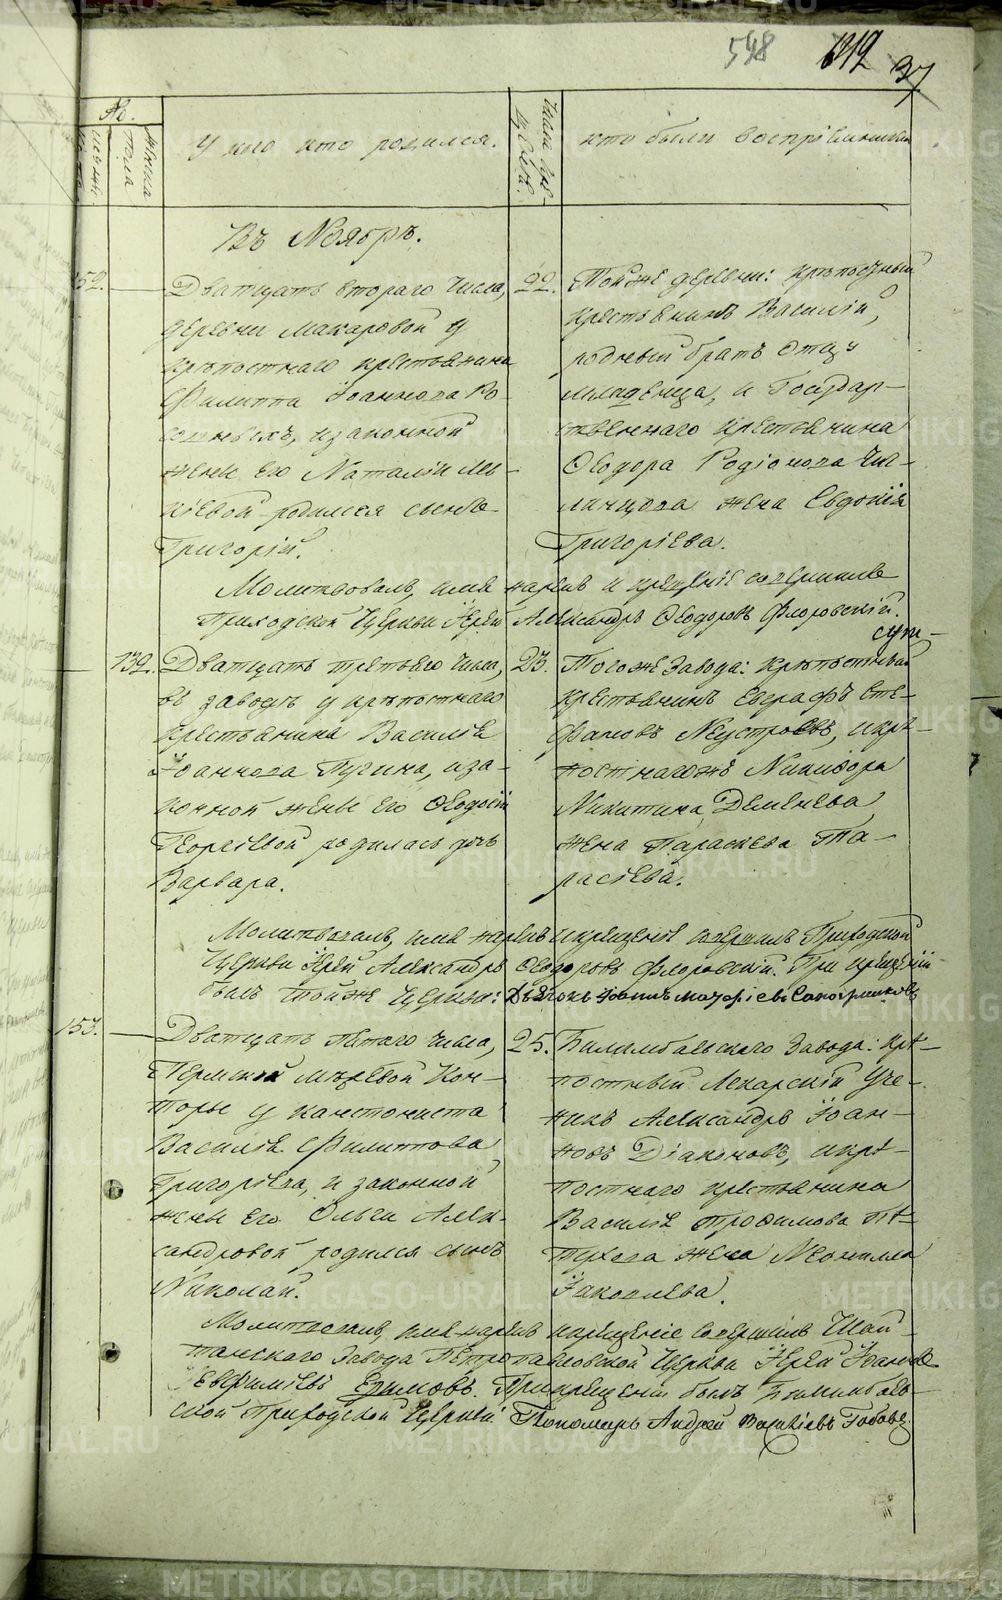 548 1312 37
№.
Мужеска
пола
Женска
У кого кто родился.
Число кре-
щенія.
кто были воспріемники
Въ Ноябрѣ.
152.
Дватцать втораго числа,
деревни Макаровой у
крѣпостнаго крестьянина
Филиппа Іоаннова
и законной
жены его Наталіи
родился сынъ
Григорій.
22.
Той же деревни: крѣпостный
крестьянинъ Василій,
родный братъ отцу
младенца, и Государ-
ственнаго крестьянина
Ѳеодора Родіонова
жена Евдокія
Григоріева.
Молитвовалъ, имя нарекъ и крещеніе совершилъ
Приходской Церкви Іерей Александръ Ѳеодоровъ Флоровскій.
139.
Дватцать третьяго числа,
въ заводѣ у крѣпостнаго
крестьянина Василія
Іоаннова Пугина, и за-
конной жены его Ѳеодосіи
Георгіевой родилась дочь
Варвара.
23.
Того же Завода: крѣпостный
крестьянинъ Евграфъ Сте-
фановъ Неустроевъ, и крѣ-
постнаго же Никифора
Никитина Деменева
жена Параскева Та-
расіева.
Молитвовалъ, имя нарекъ и крещеніе совершилъ Приходской
Церкви Іерей Александръ Ѳеодоровъ Флоровскій. При крещеніи
былъ той же Церкви: Дьяконъ Іоаннъ
153.
Дватцать пятаго числа,
Пермской межевой Кон-
торы у кантониста
Василія Филиппова
Григорьева, и законной
жены его Ольги Алек-
сандровой родился сынъ
Николай.
25.
Билимбаевскаго Завода: крѣ-
постный Лекарскій Уче-
никъ Александръ Іоан-
новъ Діаконовъ, и крѣ-
постнаго крестьянина
Василія Трофимова Пѣ-
тухова жена Неонилла
Іаковлева.
Молитвовалъ, имя нарекъ и крещеніе совершилъ Шай-
танскаго Завода Петропавловской Церкви Іерей Іоаннъ
Евфиміевъ При крещеніи былъ Билимбаев-
ской Приходской Церкви Пономарь Андрей
METRIKI.GASO-URAL.RU